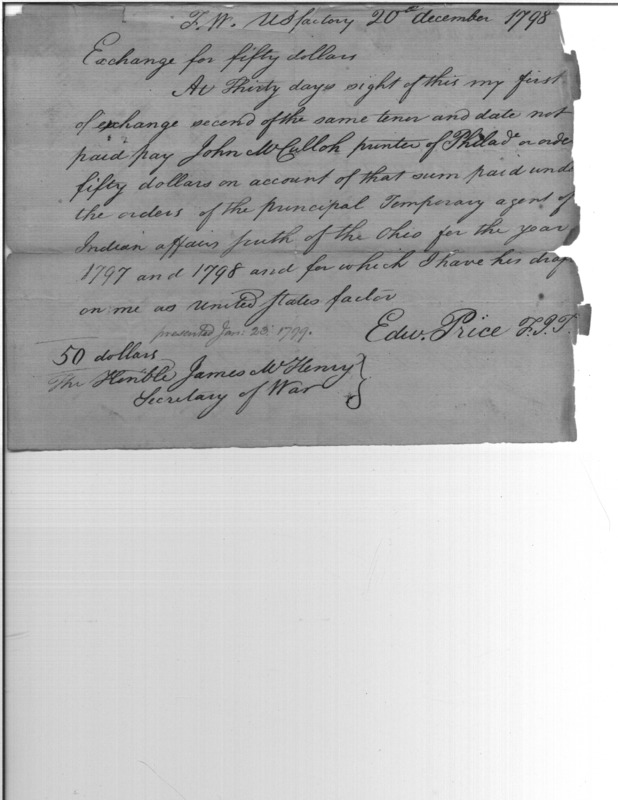 F. W. US factory 20th december 1798
Exchange for fifty dollars
At Thirty days sight of this my first
of exchange second of the same tenor and date not
paid pay John McCulloh printer of Philada or orde
fifty dollars on account of that sum paid und
the orders of the principal Temporary agent of
Indian affairs south of the Ohio for the year
1797 and 1798 and for which I have his drap
on me as United States factor
presented Jan: 23: 1799.
Edw. Price F.
50 dollars
The Honble James McHenry
Secretary of War